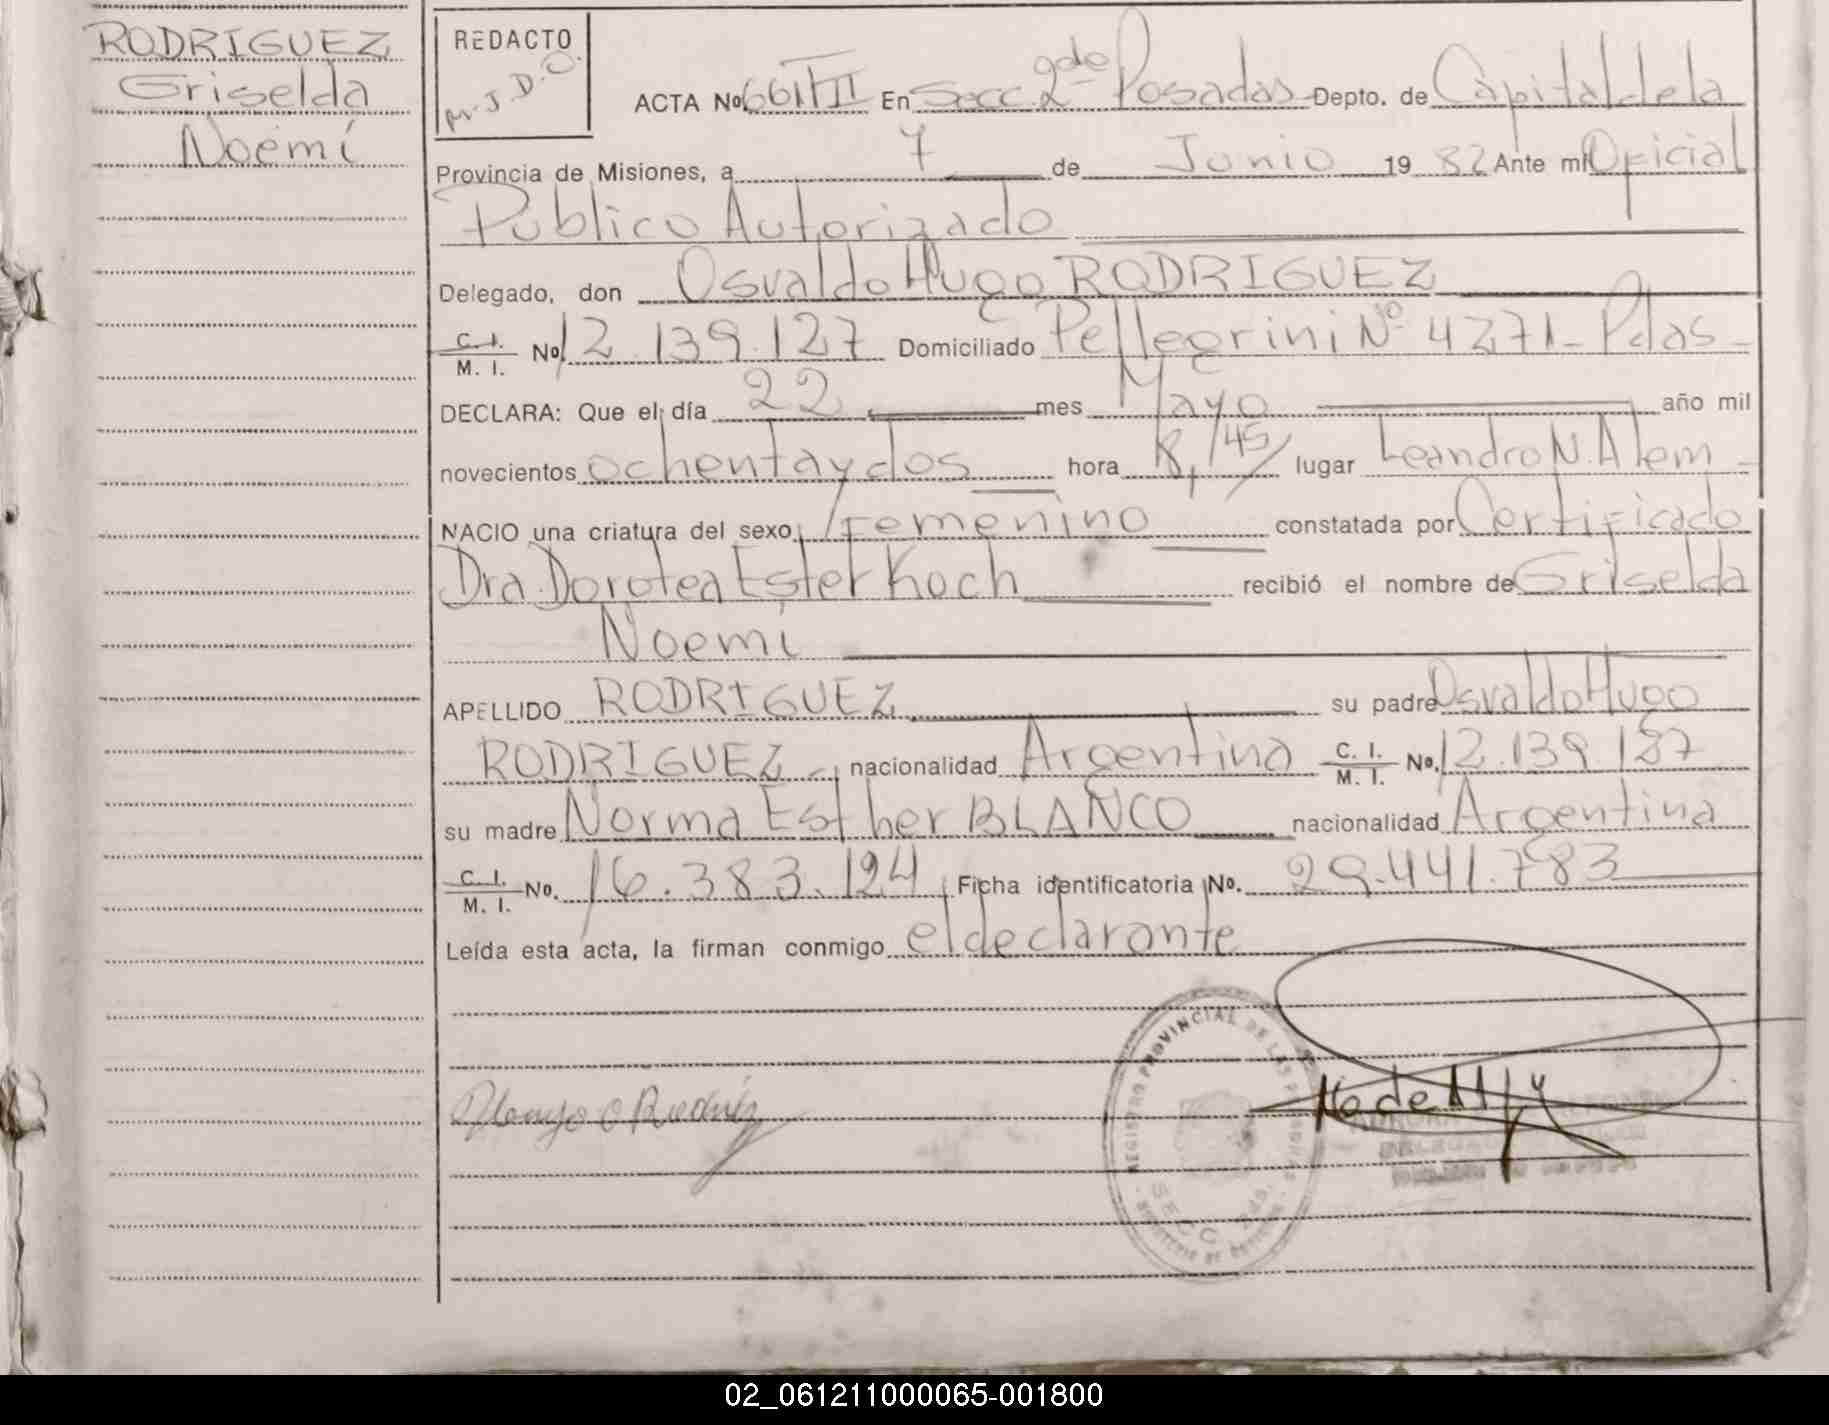 RODRIGUEZ
Griselda
Noemí
REDACTO
M.J.D.O.
ACTA No. 661TII En Secc. 2da Posadas Depto. de Capital de la
Provincia de Misiones, a 7 de Junio 19 82 Ante mí Oficial
Publico Autorizado
Delegado, don Osvaldo Hugo RODRIGUEZ
C. I.
M. I. No. 12.139.127 Domiciliado Pellegrini Nº 4271 - Pdas -
DECLARA: Que el día 22 mes Mayo año mil
novecientos ochenta y dos hora 8,45 lugar Leandro N. Alem -
NACIO una criatura del sexo femenino constatada por Certificado
Dra. Dorotea Ester Koch recibió el nombre de Griselda
Noemi
APELLIDO RODRIGUEZ su padre Osvaldo Hugo
RODRIGUEZ - nacionalidad Argentina C. I.
M. I. No. 12.139.187
su madre Norma Esther BLANCO nacionalidad Argentina
C. I.
M. I. No. 16.383.124 Ficha identificatoria No. 29.441.783
Leída esta acta, la firman conmigo el declarante
REGISTRO PROVINCIAL DE LAS PERSONAS
SECC. 2da.
02_061211000065-001800